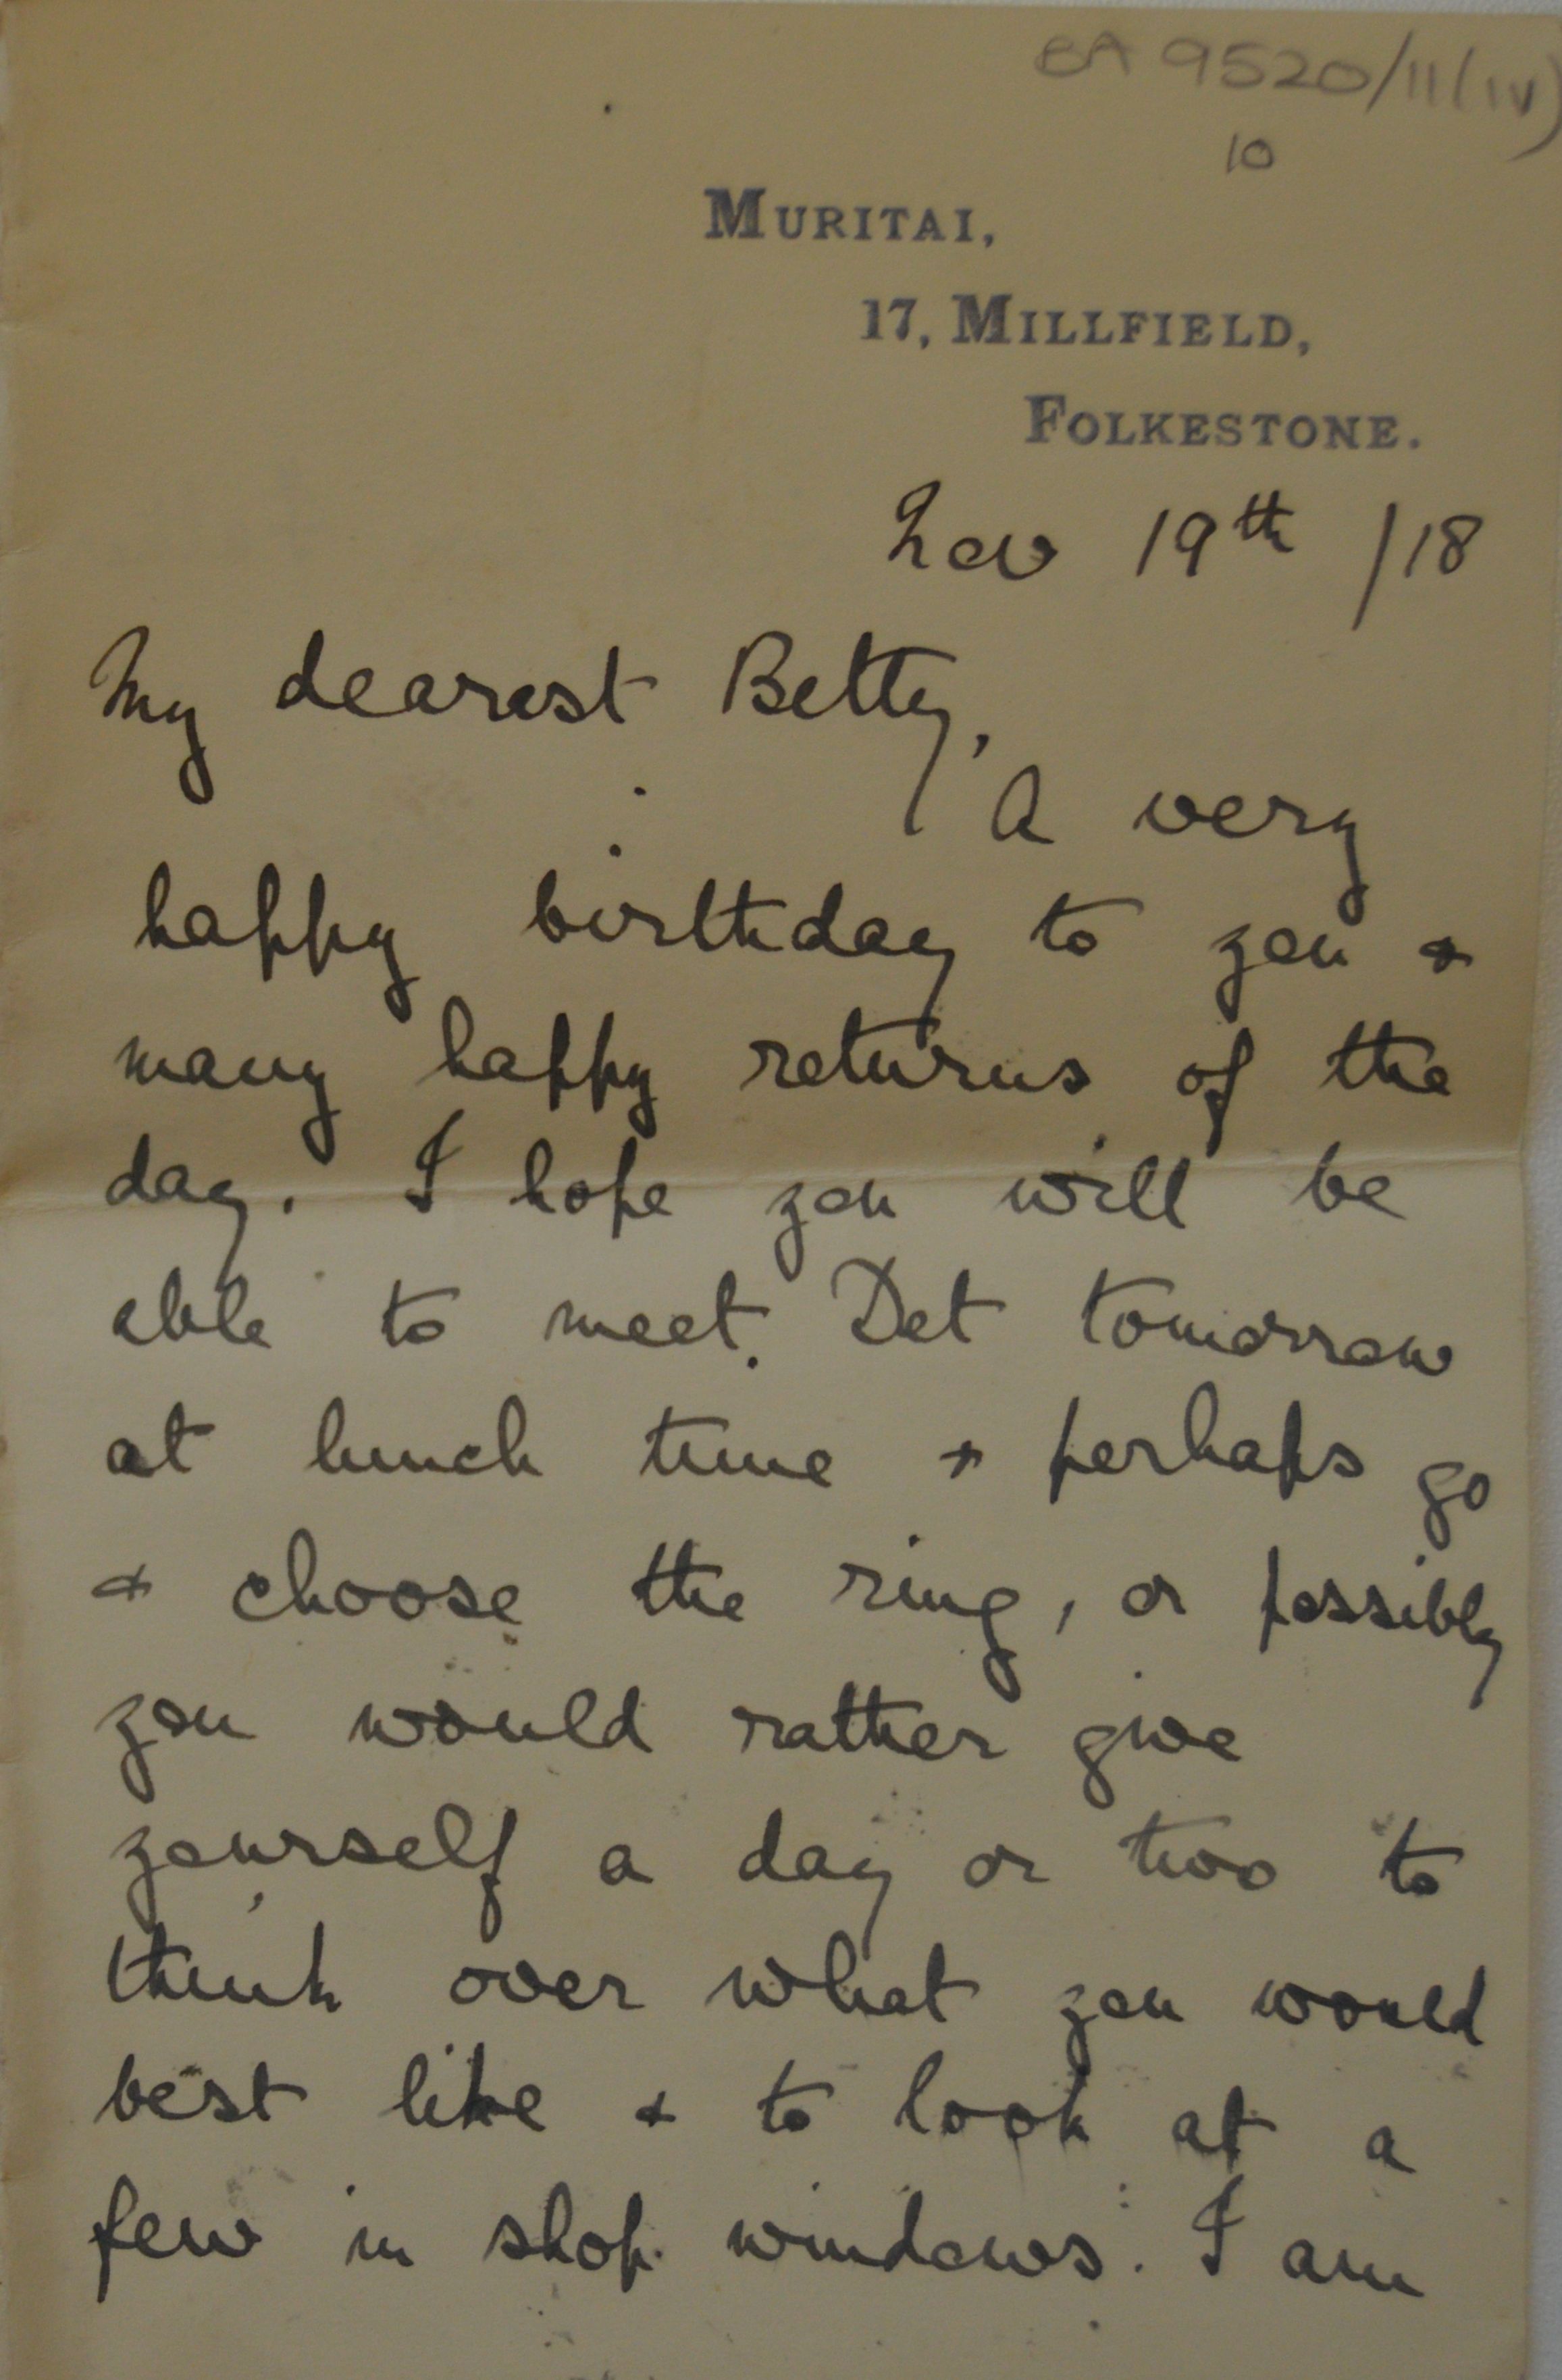 EA 9520/11(IV)
10
MURITAI,
17, MILLFIELD,
FOLKESTONE.
Nov 19th /18
My dearest Betty,
A very
happy birthday to you &
many happy returns of the
day. I hope you will be
able to meet Det tomorrow
at lunch time & perhaps go
& choose the ring, or possibly
you would rather give
yourself a day or two to
think over what you would
best like & to look at a
few in shop windows. I am